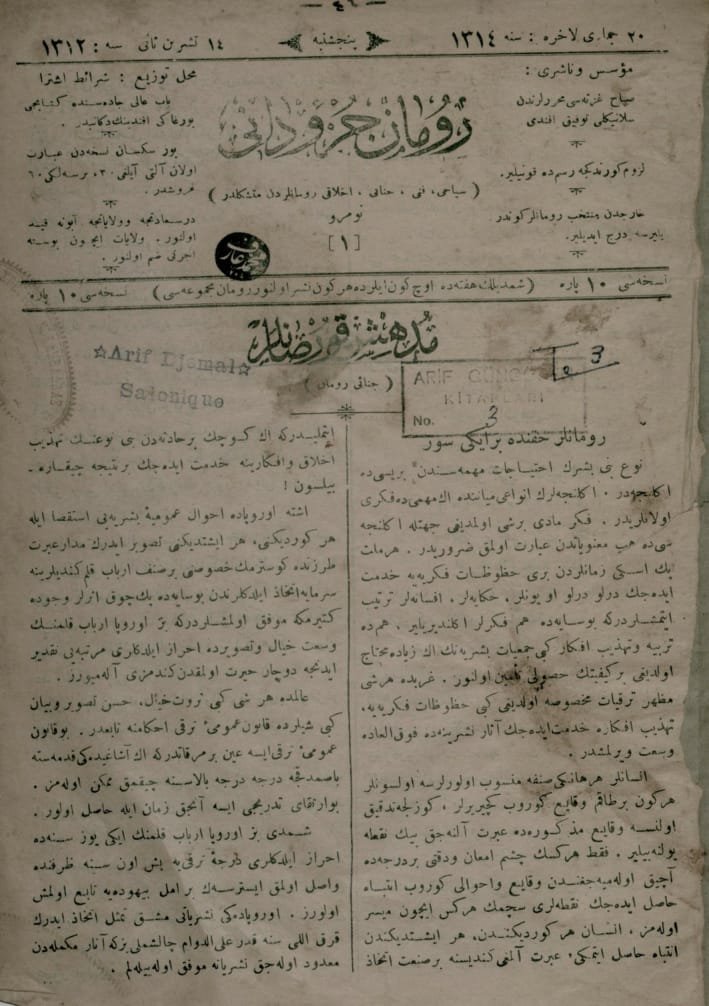 — ٤٦ —
٢٠ جمازی لاخره : سنه ١٣١٤
پنجشنبه
١٤ تشرین ثانی سنه : ١٣١٢
مؤسس و ناشری :
صباح غزته‌سی محررلرندن
سلانیکلی توفیق افندی
لزوم کورندکجه رسم ده قونیلیر.
خارجدن منتخب رومانلر کوندر
یلیرسه درج ایدیلیر.
رومان جزودانی
( سیاحی ، فنی ، جنائی ، اخلاقی رومانلردن متشکلدر )
نومرو
[١]
محل توزیع : شرائط اشترا
باب عالی جاده‌سنده کتابجی
افندینك دکانیدر .
یوز سکسان نسخه‌دن عبارت
اولان آلتی آیلغی ٣٠، برسنه‌لکی ٦٠
غروشدر.
درسعادتجه وولایاتجه آبونه قید
اولنور . ولایات ایچون پوسته
اجرتی ضم اولنور .
نسخه‌سی ١٠ پاره
( شمدیلك هفته‌ده اوچ کون ایلرده هرکون نشر اولنور رومان مجموعه‌سی )
نسخه‌سی ١٠ پاره
مدهش قورصانلر
( جنائی رومان )
☆Arif Djemal☆
Salonique
ARIF
KİTAPLARI
No. 3
3
رومانلر حقنده برایکی سوز
نوع بنی بشرك احتیاجات مهمه‌سندن بریسی ده
اکلنجه‌در . اکلنجه‌لرك انواعی میاننده اك مهمی ده فکری
اولانلریدر . فکر مادی برشی اولمدیغی جهتله اکلنجه
سی ده هب معنویاتدن عبارت اولمق ضروریدر . هر ملت
پك اسکی زمانلردن بری حظوظات فکریه‌یه خدمت
ایده‌جك درلو درلو اویونلر ، حکایه‌لر ، افسانه‌لر ترتیب
ایتمشلردرکه بوسایه‌ده هم فکرلر اکلندیریلیر . هم ده
تربیه وتهذیب افکار کبی جمعیات بشریه‌نك اك زیاده محتاج
اولدیغی برکیفیتك حصولی تأمین اولنور . غربده هرشی
مظهر ترقیات مخصوصه اولدیغی کبی حظوظات فکریه‌یه،
تهذیب افکاره خدمت ایده‌جك آثار نشرینه‌ده فوق العاده
وسعت ویرلمشدر .
انسانلر هرهانکی صنفه منسوب اولورلرسه اولسونلر
هرکون برطاقم وقایع کوروب کچیریرلر ، کوزلجه تدقیق
اولنسه وقایع مذکوره‌ده عبرت آلنه‌جق بیك نقطه
بولنه‌بیلیر . فقط هرکسك چشم امعان ودقتی بردرجه‌ده
آچیق اوله‌میه‌جغندن وقایع واحوالی کوروب انتباه
حاصل ایده‌جك نقطه‌لری سچمك هرکس ایچون میسر
اوله‌مز ، انسان هر کوردیکندن، هر ایشتدیکندن
انتباه حاصل ایتمکی، عبرت آلمغی کندیسنه برصنعت اتخاذ
ایتملیدرکه اك کوچك برحادثه‌دن بنی نوعنك تهذیب
اخلاق وافکارینه خدمت ایده‌جك برنتیجه چیقاره ـ
بیلسون !
اشته اوروپاده احوال عمومیهٔ بشریه‌یی استقصا ایله
هر کوردیکنی، هر ایشتدیکنی تصویر ایدرك مدار عبرت
طرزنده کوسترمك خصوصنی برصنف ارباب قلم کندیلرینه
سرمایه اتخاذ ایلدکلرندن بوسایه‌ده پك چوق اثرلر وجوده
کتیرمکه موفق اولمشلردرکه بز اوروپا ارباب قلمنك
وسعت خیال وتصویرده احراز ایلدکلری مرتبه‌یی تقدیر
ایدنجه دوچار حیرت اولمقدن کندمزی آله‌میورز .
عالمده هر شی کبی ثروت خیال، حسن تصویر وبیان
کبی شیلرده قانون عمومیٔ ترقی احکامنه تابعدر . بوقانون
عمومیٔ ترقی ایسه عین بر مرقاتدرکه اك آشاغیده‌کی قدمه‌سنه
باصمدقجه درجه درجه بالاسنه چیقمق ممکن اوله‌مز .
بوارتقای تدریجی ایسه آنجق زمان ایله حاصل اولور .
شمدی بز اوروپا ارباب قلمنك ایکی یوز سنه‌ده
احراز ایلدکلری درجهٔ ترقی‌یه بش اون سنه ظرفنده
واصل اولمق ایسترسه‌ك بر امل بیهوده‌یه تابع اولمش
اولورز . اوروپاده‌کی نشریاتی مشق تمثل اتخاذ ایدرك
قرق اللی سنه قدر علی الدوام چالشملی یزکه آثار مکمله‌دن
معدود اوله‌جق نشریاته موفق اوله‌بیله‌لم .